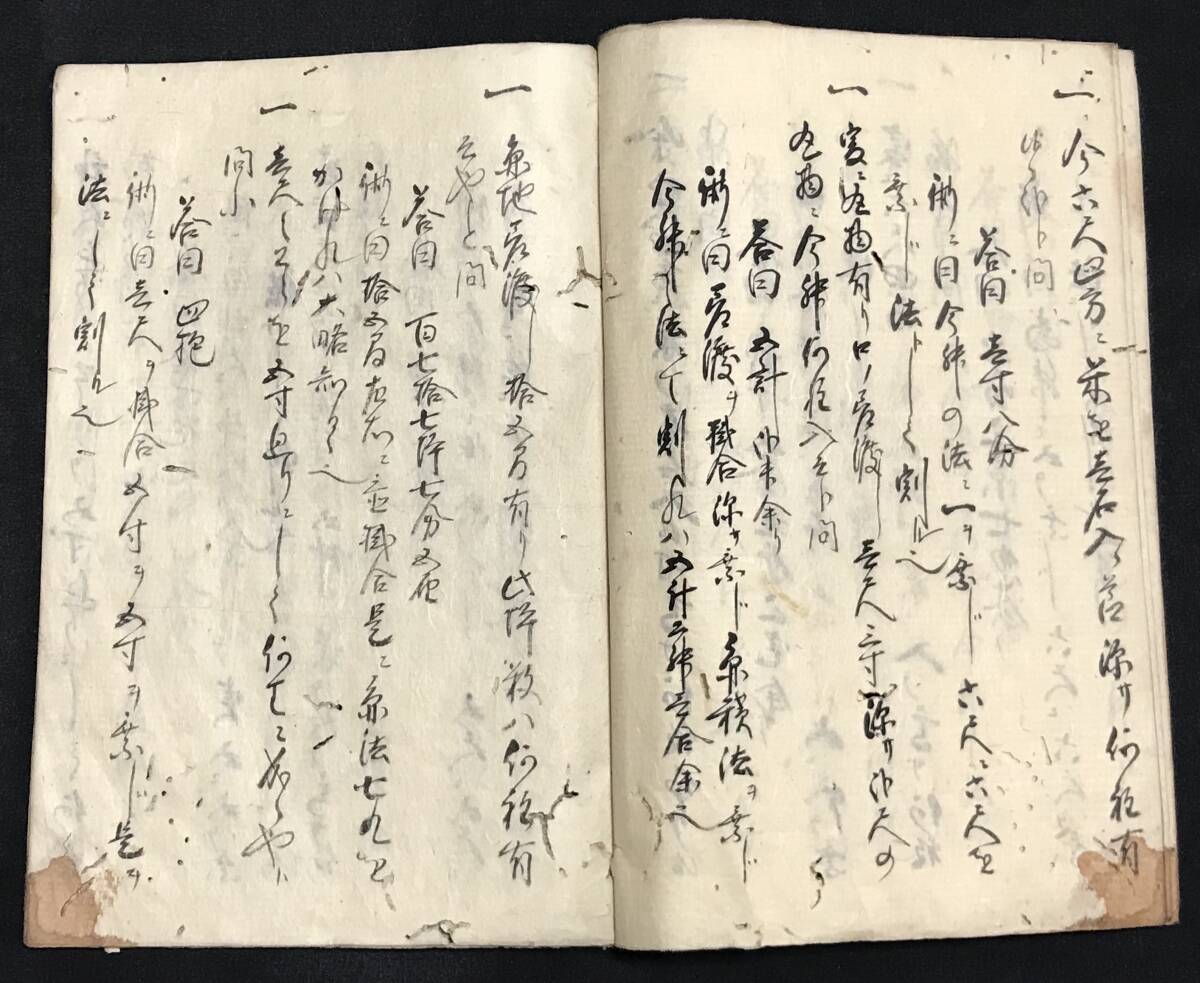 一 今六尺四方ニ米を壱石入ル 深サ何程有
ト問
答曰 壱寸八分
術ニ曰今舛の法ニ一ヲ乗じ六尺ニ六尺を
乗じ 法トして割ル也
一 爰ニ丸物有り口ノ差渡し三尺三寸深サ 尺の
丸物ニ今舛何程入ルト問
答曰 五計 余り
術ニ曰差渡ヲ掛合深サヲ乗じ 円積法ヲ乗じ
今舛ノ法ニて割レハ五計二舛三合余也
一 円地差渡し拾五間有り此坪数ハ何程有
そやと問
答曰 百七拾七坪七分五厘
術ニ曰拾五間左右ニ置掛合是ニ円法七九を
かけれハ大略知るゝ也
一 壱尺 を五寸 りにして何 ニ成るや
問
答曰 四
術ニ曰壱尺ヲ掛合五寸ヲ五寸ヲ乗じ是ヲ
法ニして割ル也